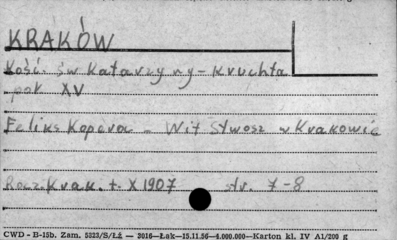 KRAKÓW
Kość. św Katarzyny - kruchta
poł. XV
Feliks Kopera - Wit Stwosz w Krakowie
Rocz. Krak. t. X 1907 str. 7-8
CWD - B-15b. Zam. 5323/S/Łź — 3016—Łak—15.11.56—4.000.000—Karton kl. IV A1/200 g